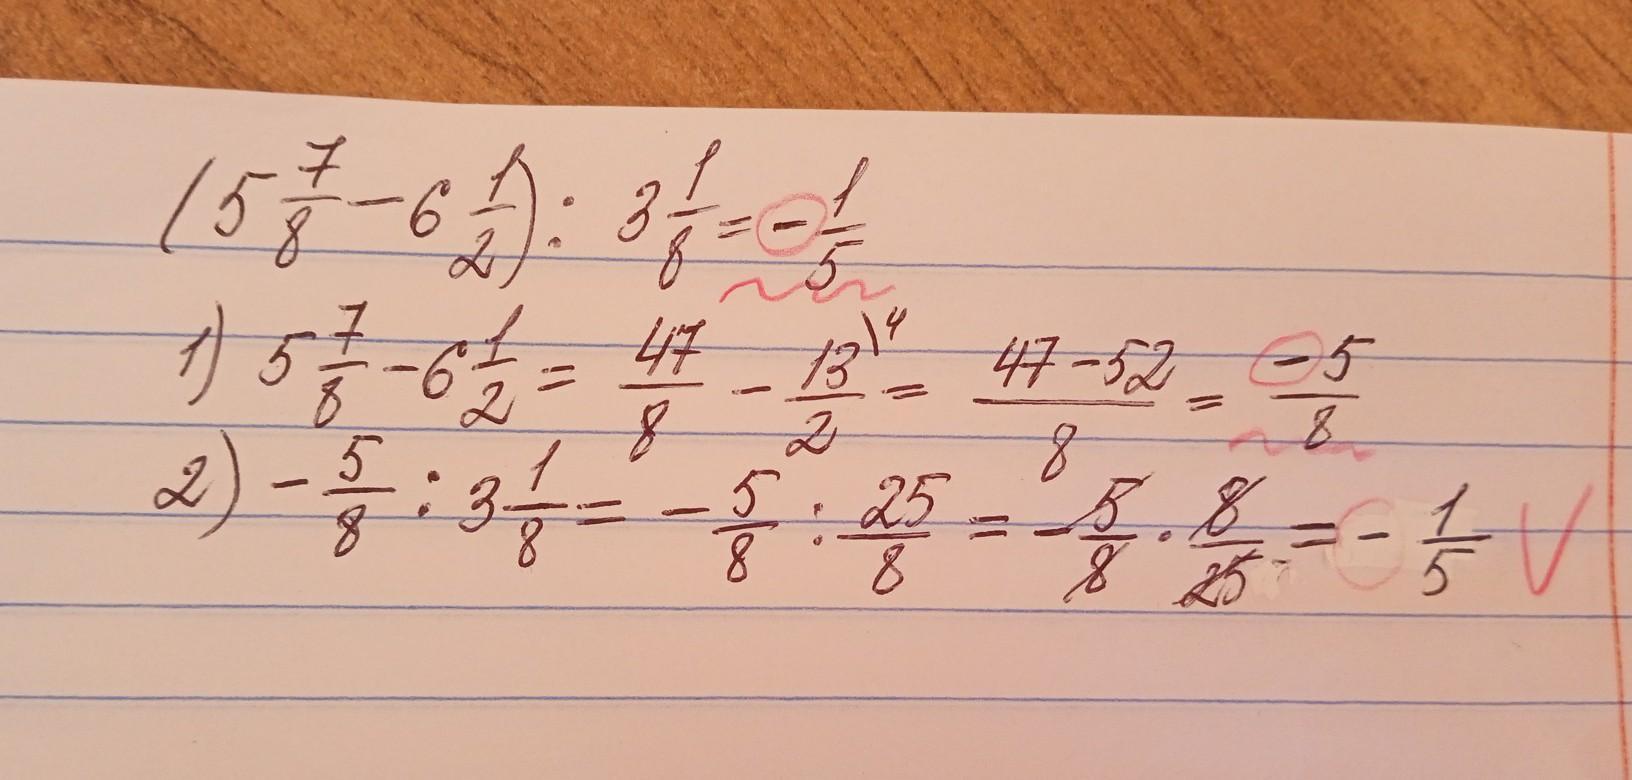 (5 7/8 - 6 1/2) : 3 1/8 = - 1/5
1) 5 7/8 - 6 1/2 = 47/8 - 13/2 \4 = 47-52/8 = -5/8
2) - 5/8 : 3 1/8 = - 5/8 : 25/8 = - 5/8 · 8/25 = - 1/5 V